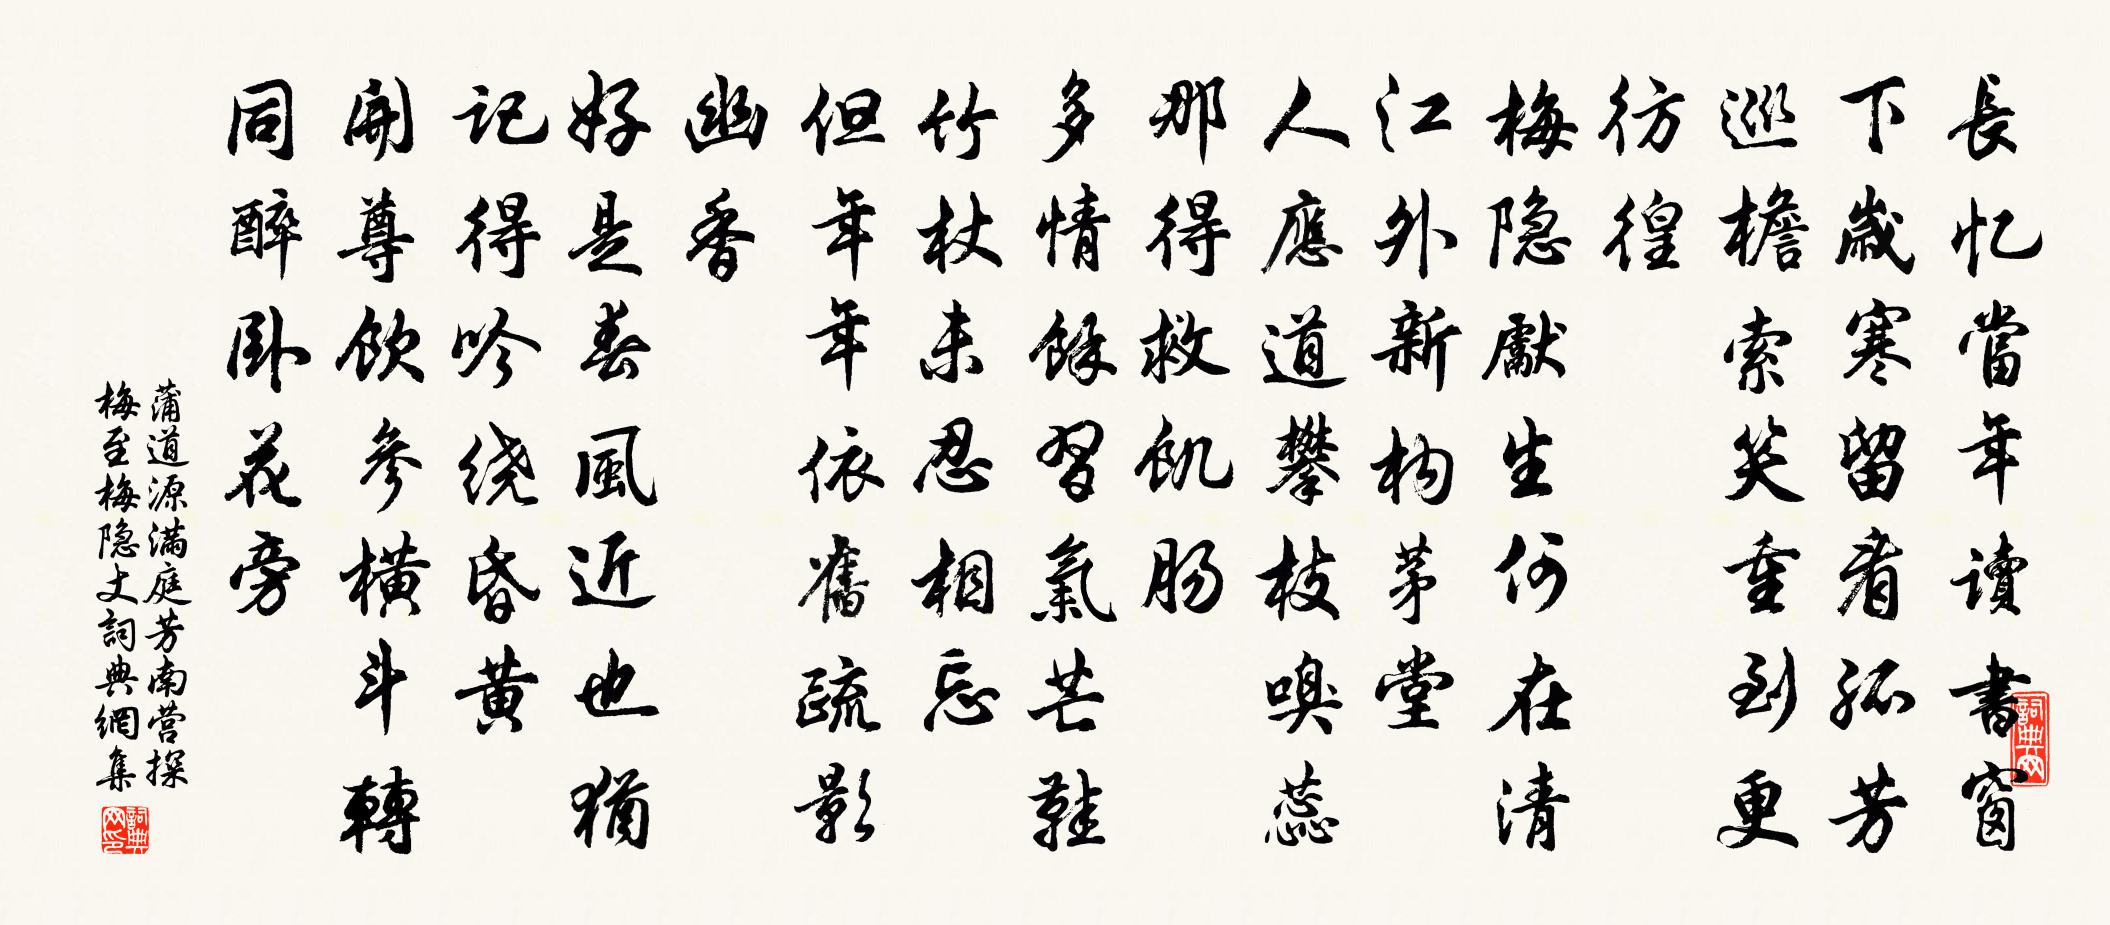 長忆當年讀書窗
下歲寒留看孤芳
巡檐索笑重到更
彷徨
梅隐獻生何在清
江外新构茅堂
人應道攀枝嗅蕊
那得救飢肠
多情餘習氣芒鞋
竹杖未忍相忘
但年年依舊疏影
幽香
好是春風近也猶
記得吟绕昏黄
開尊飲參橫斗轉
同醉卧花旁
蒲道源满庭芳南营探
梅至梅隐丈詞典網集
詞典网
詞典网印